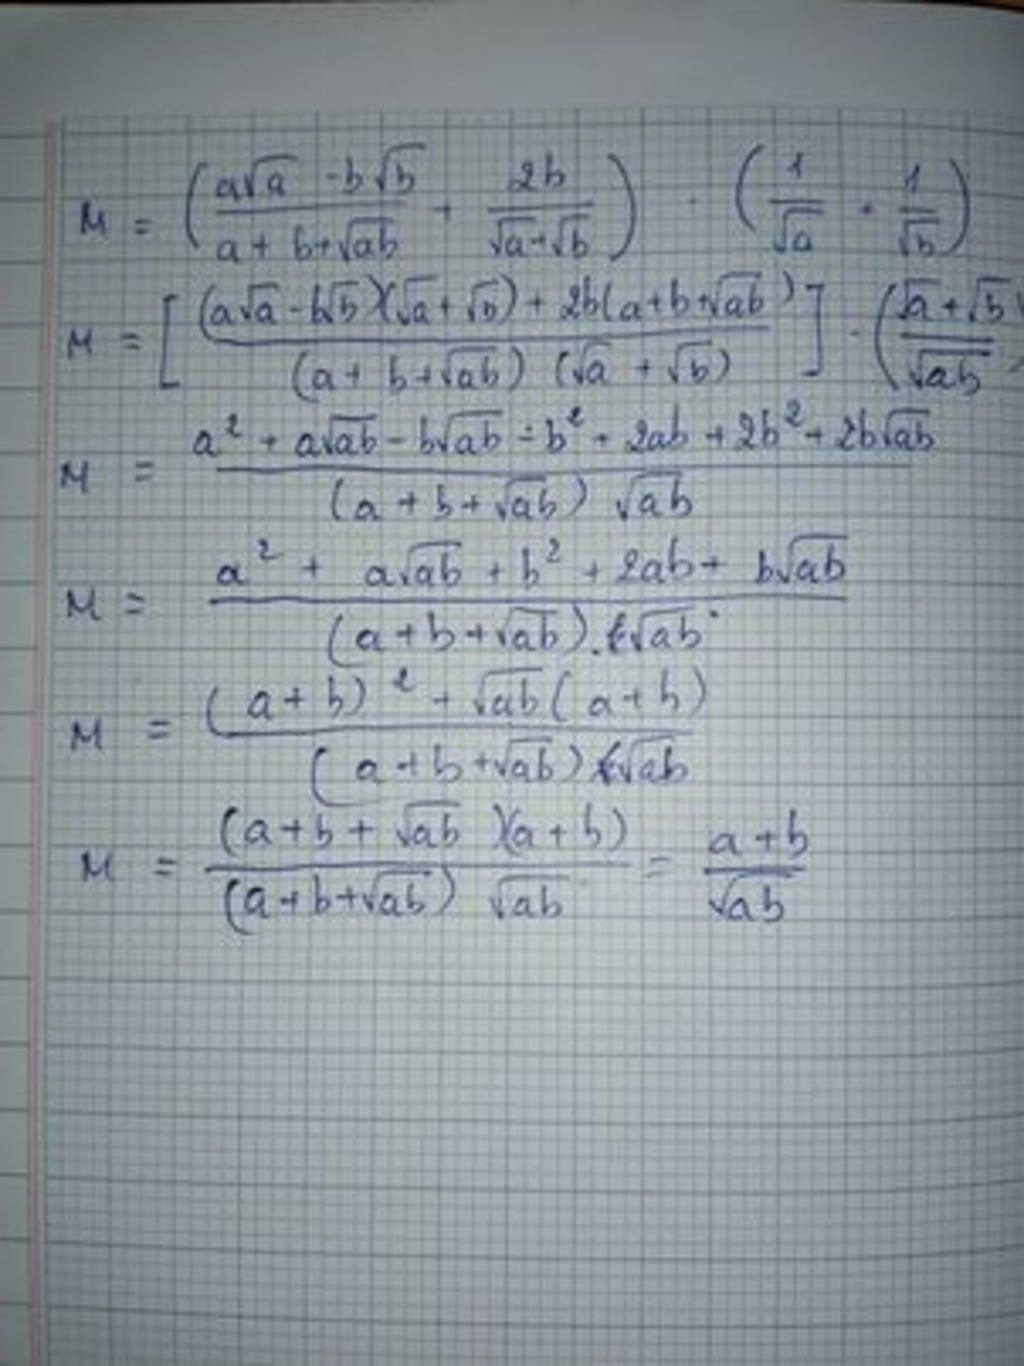 M = ( (a√a - b√b)/(a + b + √ab) + 2b/(√a + √b) ) · ( 1/√a + 1/√b )
M = [ ((a√a - b√b)(√a + √b) + 2b(a + b + √ab))/((a + b + √ab) (√a + √b)) ] · ( (√a + √b)/√ab
M = (a² + a√ab - b√ab - b² + 2ab + 2b² + 2b√ab)/((a + b + √ab) √ab)
M = (a² + a√ab + b² + 2ab + b√ab)/((a + b + √ab) . √ab)
M = ((a + b)² + √ab (a + b))/((a + b + √ab) √ab)
M = ((a + b + √ab)(a + b))/((a + b + √ab) √ab) = (a + b)/√ab